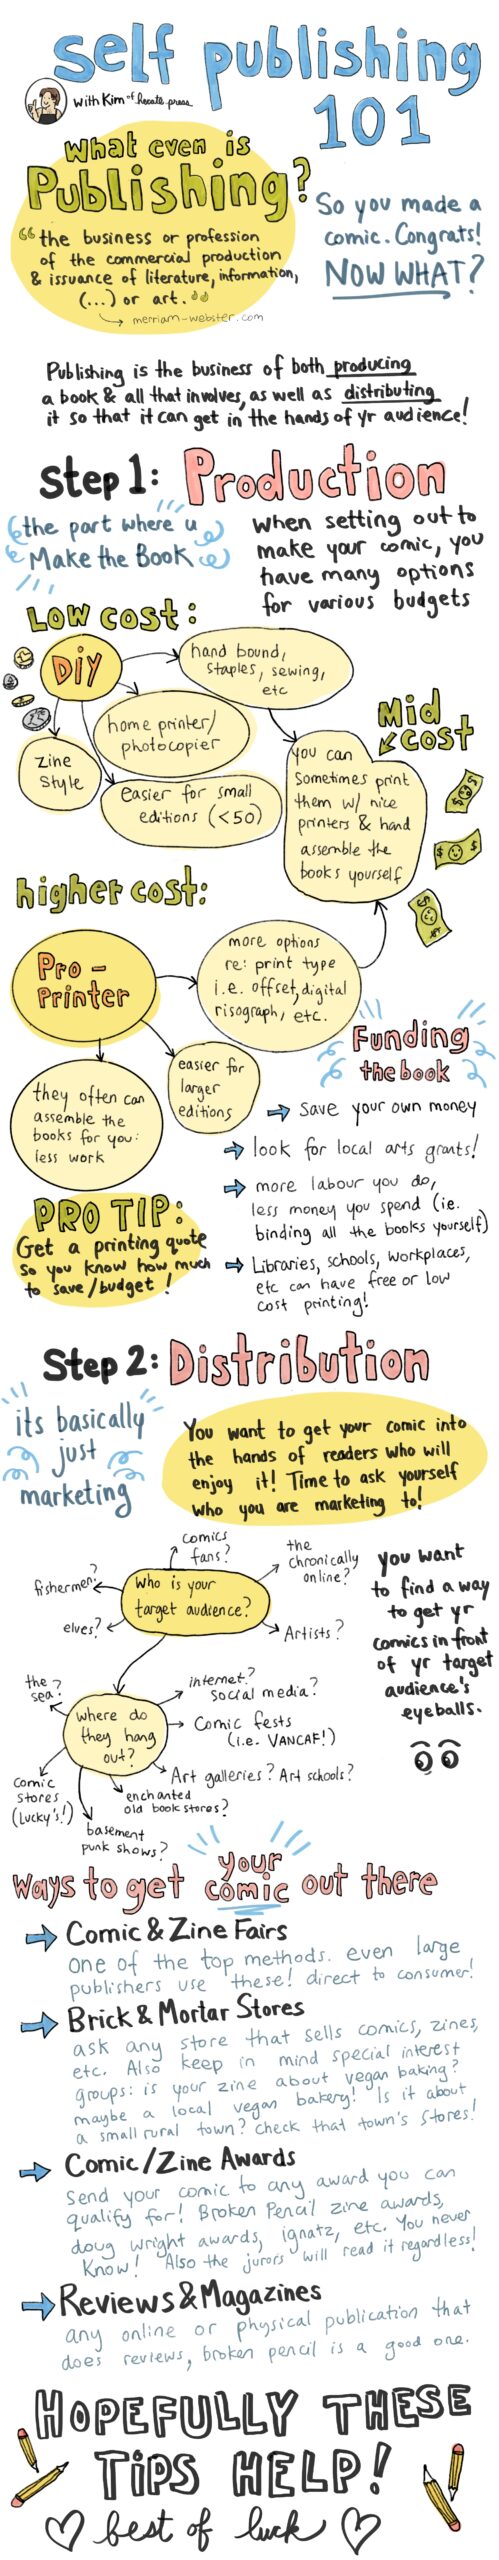 self publishing
101
with Kim of Hecate press
What even is
Publishing?
"the business or profession
of the commercial production
& issuance of literature, information,
(...) or art."
merriam-webster.com
So you made a
comic. Congrats!
NOW WHAT?
Publishing is the business of both producing
a book & all that involves, as well as distributing
it so that it can get in the hands of yr audience!
Step 1: Production
the part where u
Make the Book
When setting out to
make your comic, you
have many options
for various budgets
Low cost:
DiY
hand bound,
staples, sewing,
etc
home printer/
photocopier
zine
style
easier for small
editions (<50)
Mid
cost
you can
sometimes print
them w/ nice
printers & hand
assemble the
books yourself
higher cost:
Pro-
Printer
more options
re: print type
i.e. offset, digital
risograph, etc.
easier for
larger
editions
they often can
assemble the
books for you:
less work
Funding
the book
save your own money
look for local arts grants!
more labour you do,
less money you spend (ie.
binding all the books yourself)
Libraries, schools, workplaces,
etc can have free or low
cost printing!
PRO TIP:
Get a printing quote
so you know how much
to save/budget!
Step 2: Distribution
its basically
just
marketing
You want to get your comic into
the hands of readers who will
enjoy it! Time to ask yourself
who you are marketing to!
Who is your
target audience?
comics
fans?
the
chronically
online?
fishermen?
elves?
Artists?
you want
to find a way
to get yr
comics in front
of yr target
audience's
eyeballs.
where do
they hang
out?
the
sea?
internet?
social media?
Comic fests
(i.e. VANCAF!)
Art galleries? Art schools?
enchanted
old book stores?
basement
punk shows?
comic
stores
(Lucky's!)
Ways to get your comic out there
Comic & Zine Fairs
one of the top methods. even large
publishers use these! direct to consumer!
Brick & Mortar Stores
ask any store that sells comics, zines,
etc. Also keep in mind special interest
groups: is your zine about vegan baking?
maybe a local vegan bakery! Is it about
a small rural town? check that town's stores!
Comic/Zine Awards
Send your comic to any award you can
qualify for! Broken Pencil zine awards,
doug wright awards, ignatz, etc. You never
know! Also the jurors will read it regardless!
Reviews & Magazines
any online or physical publication that
does reviews, broken pencil is a good one.
HOPEFULLY THESE
TiPS HELP!
best of luck